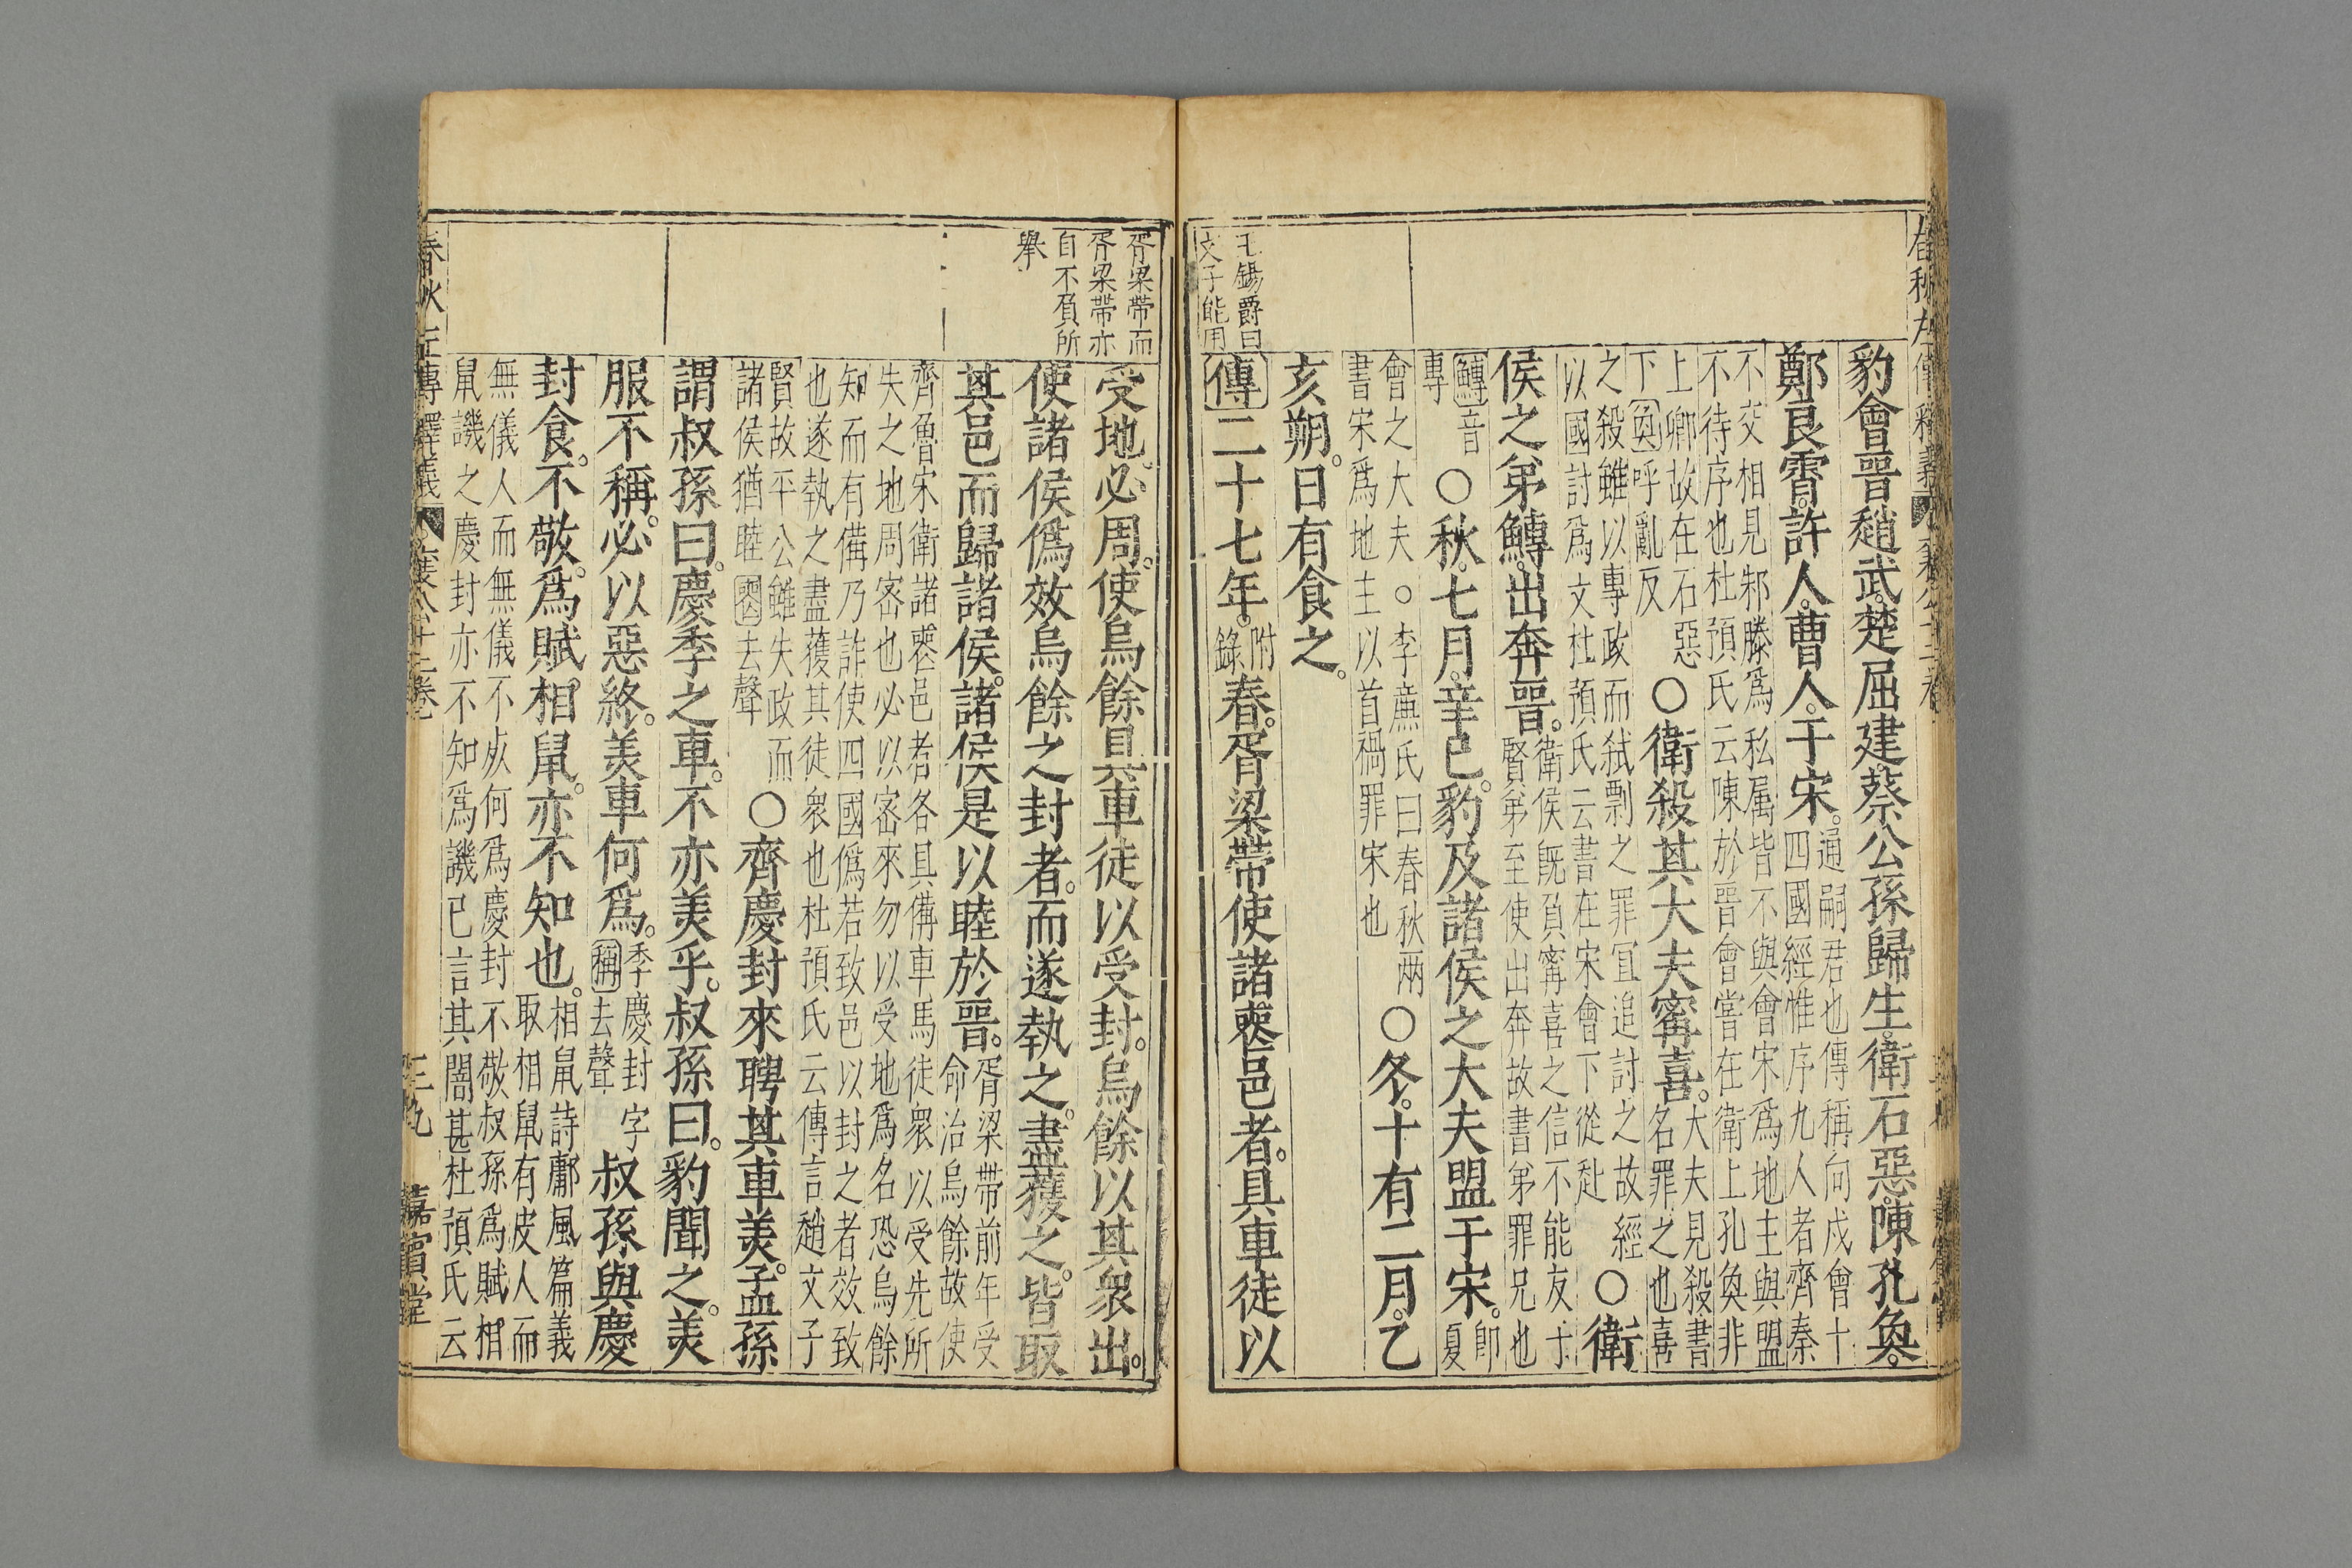 豹會晉趙武。楚屈建。蔡公孫歸生。衛石惡。陳孔奐。
鄭良霄。許人。曹人。于宋。
通嗣君也傳稱向戍會十
四國經惟序九人者齊秦
不交相見邾滕爲私属皆不與會宋爲地主與盟
不待序也杜預氏云陳於晉會嘗在衛上孔奐非
上卿故在石惡
下奐呼亂反
○衛殺其大夫甯喜。
大夫見殺書
名罪之也喜
之殺雖以專政而弑剽之罪冝追討之故經
以國討爲文杜預氏云書在宋會下從赴
○衛
侯之弟鱄。出奔晉。
衛侯旣負甯喜之信不能友于
賢弟至使出奔故書弟罪兄也
鱄音
專
○秋。七月。辛巳。豹及諸侯之大夫盟于宋。
卽
夏
會之大夫○李薦氏曰春秋兩
書宋爲地主以首禍罪宋也
○冬。十有二月。乙
亥朔。日有食之。
王錫爵曰
文子能用
傳二十七年。
附
錄
春。胥梁帶使諸䘮邑者。具車徒以
胥梁帶而
胥梁帶亦
自不負所
舉
受地。必周。使烏餘具車徒以受封。烏餘以其衆出。
使諸侯僞效烏餘之封者。而遂執之。盡獲之。皆取
其邑而歸諸侯。諸侯是以睦於晉。
胥梁帶前年受
命治烏餘故使
齊魯宋衛諸䘮邑者各具備車馬徒衆以受先所
失之地周宻也必以宻來勿以受地爲名恐烏餘
知而有備乃詐使四國僞若致邑以封之者效致
也遂執之盡獲其徒衆也杜預氏云傳言趙文子
賢故平公雖失政而
諸侯猶睦䘮去聲
○齊慶封來聘其車美。孟孫
謂叔孫曰。慶季之車。不亦美乎。叔孫曰。豹聞之。美
服不稱。必以惡終。美車何爲。
季慶封字
稱去聲
叔孫與慶
封食。不敬。爲賦。相鼠。亦不知也。
相鼠詩鄘風篇義
取相鼠有皮人而
無儀人而無儀不死何爲慶封不敬叔孫爲賦相
鼠譏之慶封亦不知爲譏已言其闇甚杜預氏云
春秋左傳釋義 襄公十三卷 三九 嘉賓堂